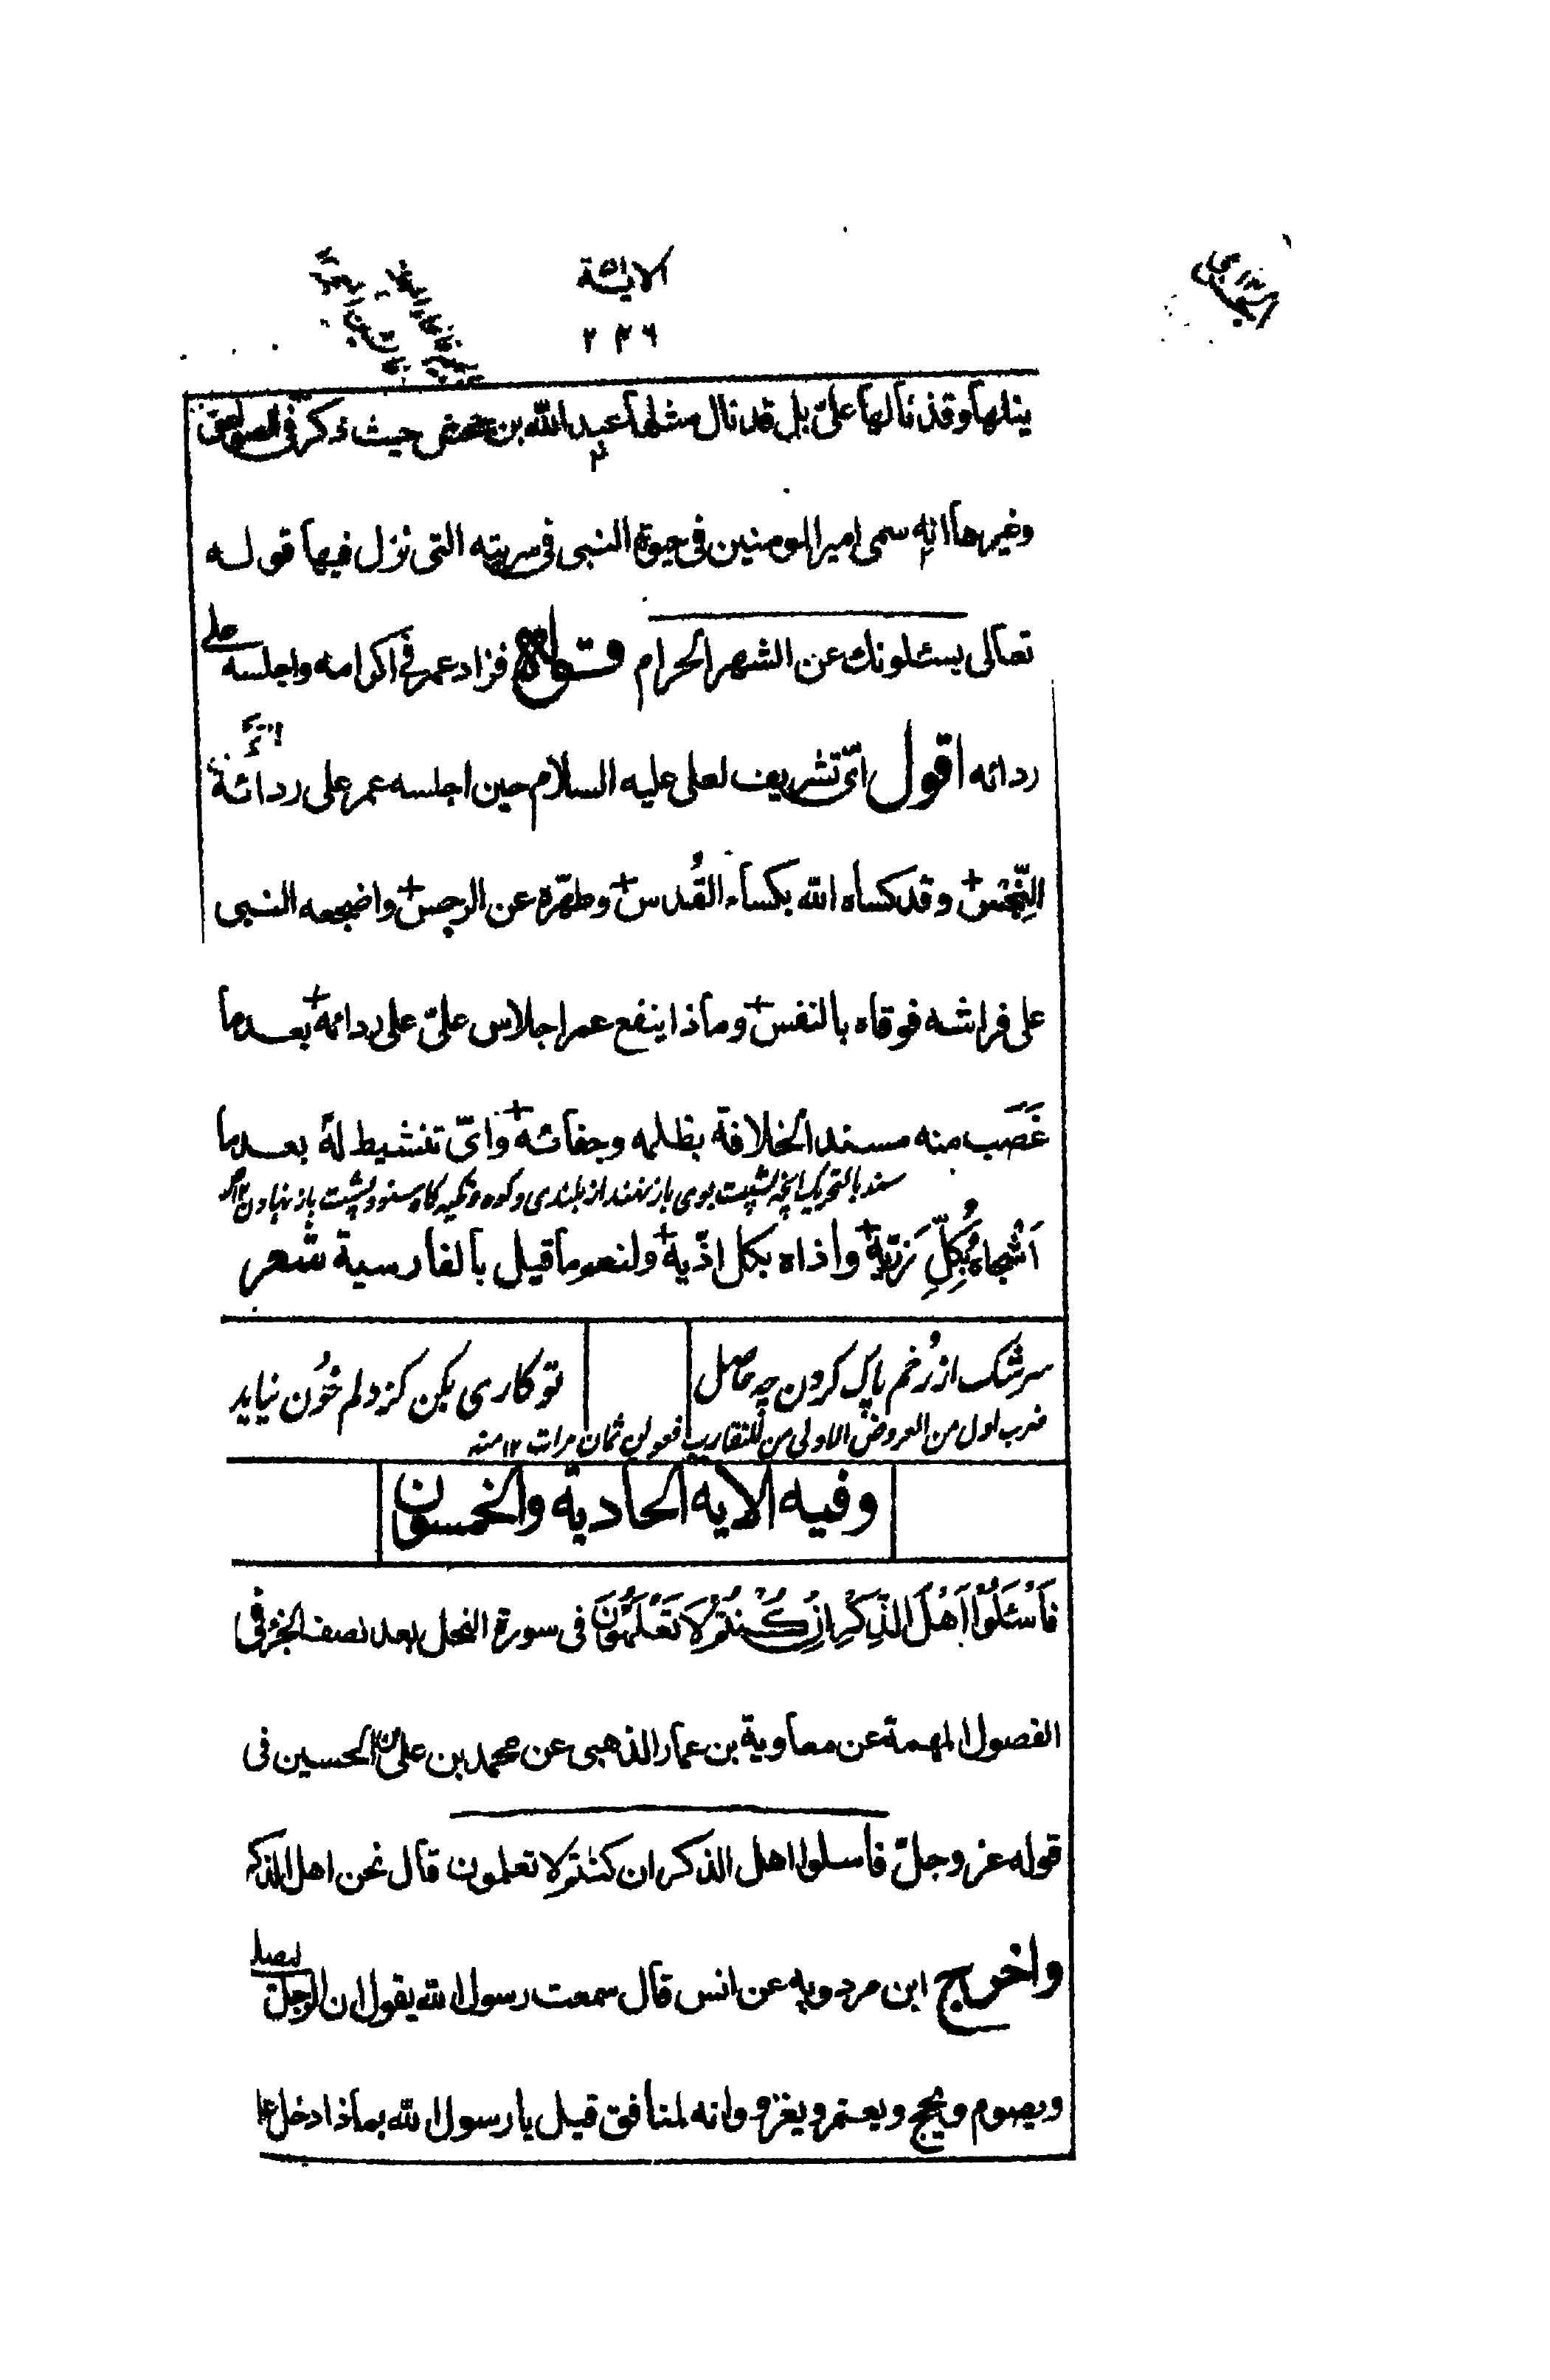 الاية
۲۳۶
ينلها وقد نالها علىّ بل قد نال مثلها عبد الله بن جحش حيث ذكر فى الصواعق
وغيرها انه سمى امير المومنين فى حيوة النبى فى سريته التى نزل فيها قوله
تعالى يسئلونك عن الشهر الحرام قوله فزاد عمر فى اكرامه واجلسه على
ردائه اقول اىّ تشريف لعلى عليه السلام حين اجلسه عمر على ردائه
النّجس وقد كساه الله بكساء القُدس وطهّره عن الرجس واضجعه النبى
على فراشه فوقاه بالنفس وماذا ينفع عمر اجلاس علىّ على ردائه بعد ما
غَصَب منه مسند الخلافة بظلمه وجفائه واىّ تنشيط له بعد ما
اَشْجاه بُكلِّ رَزيّة واذاه بكل اذّية ولنعم ما قيل بالفارسية شعر
سرشک از رُخم پاک کردن چه حاصل
تو کاری بکن کز دلم خُون نیاید
ضرب اول من العروض الاولى من المتقارب فعولن ثمان مرات ١٢ منه
وفيه الاية الحادية والخمسون
فَاسْئَلُوْا اَهْلَ الذِّكْرِ اِنْ كُنْتُمْ لَا تَعْلَمُوْنَ فى سورة النحل بعد نصف الجزء فى
الفصول المهمة عن معاوية بن عمار الذهبى عن محمد بن على بن الحسين فى
قوله عز وجلّ فاسلوا اهل الذكر ان كنتم لا تعلمون قال نحن اهل الذكر
واخرج ابن مردويه عن انس قال سمعت رسول الله يقول ان الرجل ليصلى
ويصوم ويحج ويعتمر ويغزو وانه لمنافق قيل يا رسول الله بماذا دخل